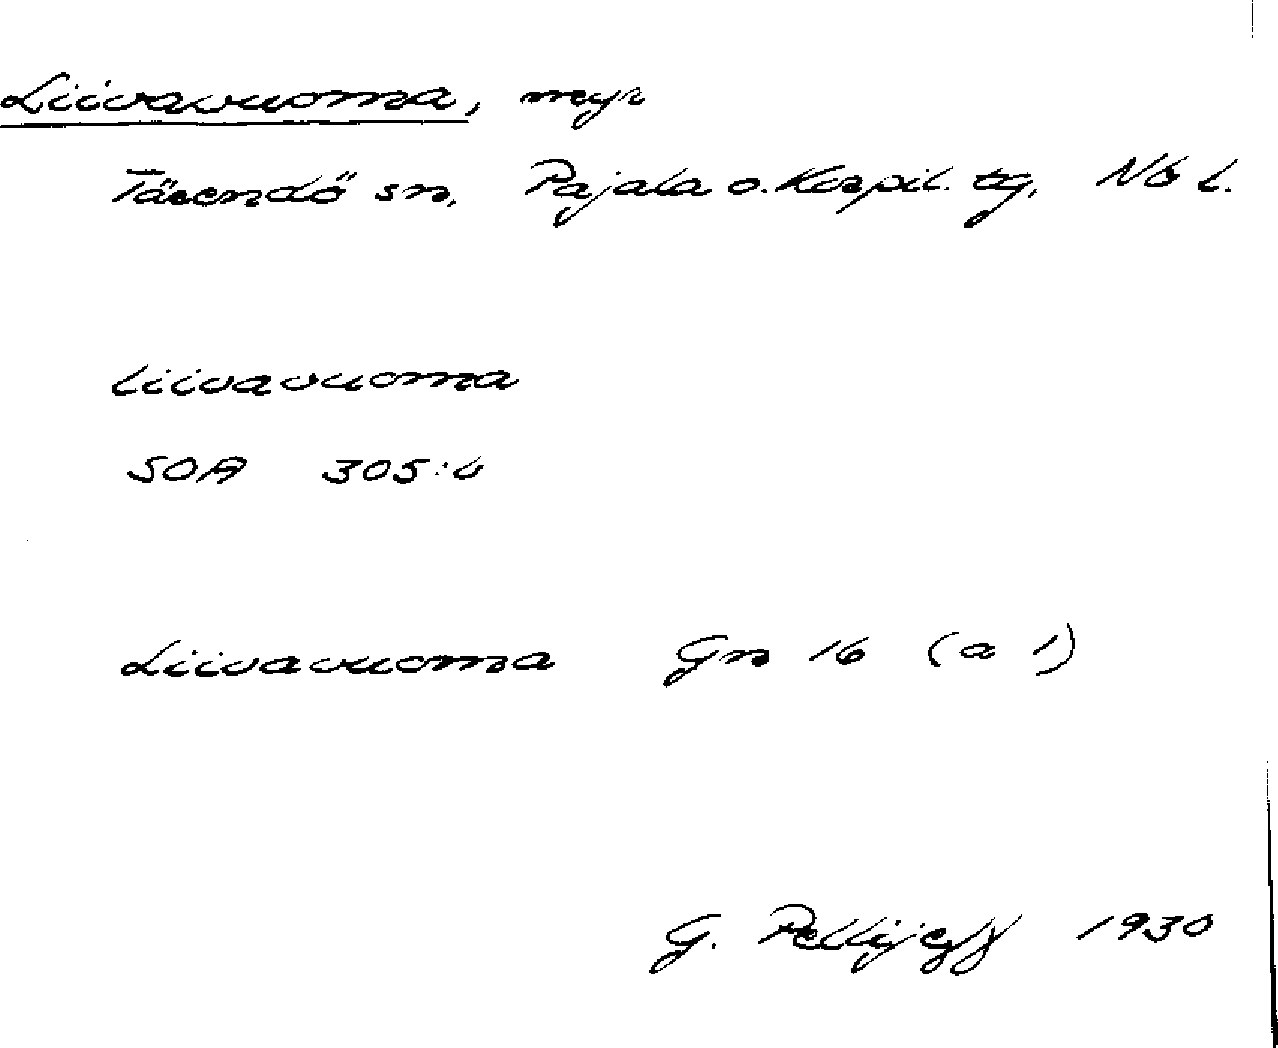 Liivavuoma, myr
Tärendö sn, Pajala o. Korpil. tg, Nb l.
Liivavuoma
SOA 305:4
Liivavuoma Gn 16 (a 1)
G. Pellijeff 1930